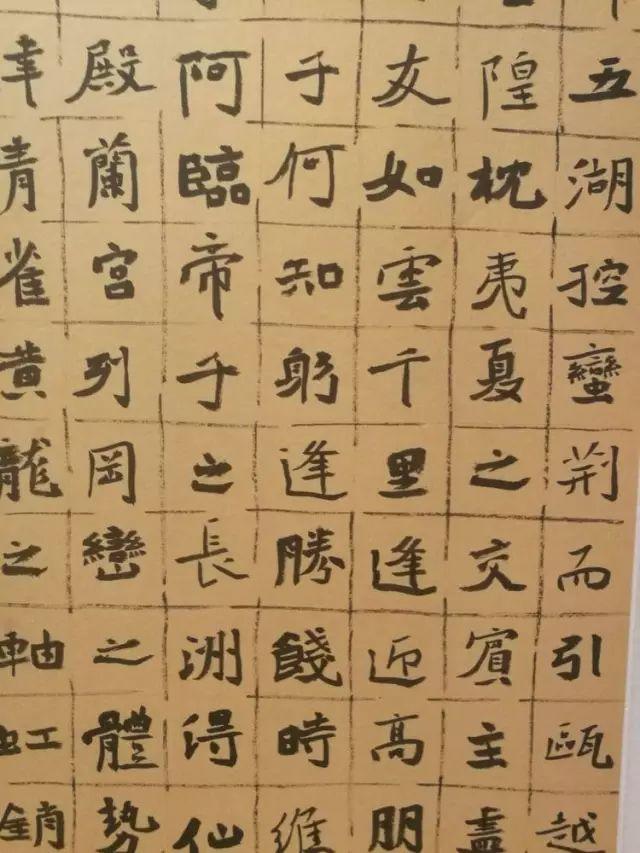 五湖控蠻荆而引甌越
隍枕夷夏之交賓主盡
友如雲千里逢迎高朋
子何知躬逢勝餞時維
阿臨帝子之長洲得仙
殿蘭宮列岡巒之體勢
津青雀黄龍之軸虹銷